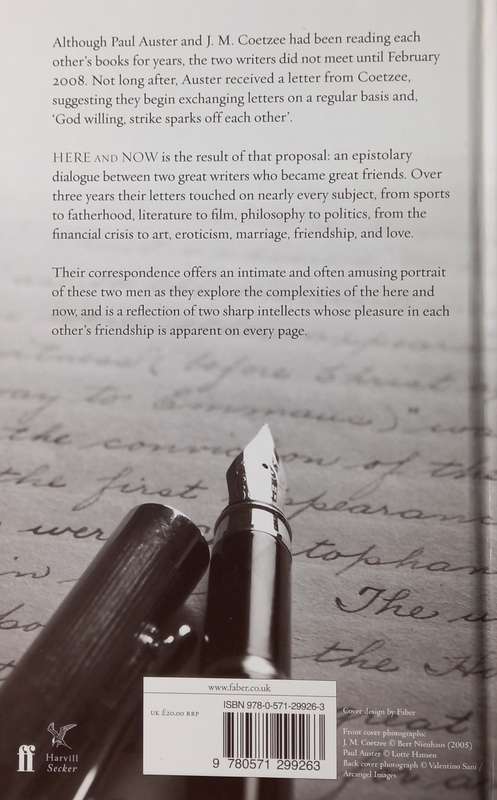 Although Paul Auster and J. M. Coetzee had been reading each
other's books for years, the two writers did not meet until February
2008. Not long after, Auster received a letter from Coetzee,
suggesting they begin exchanging letters on a regular basis and,
'God willing, strike sparks off each other'.
HERE AND NOW is the result of that proposal: an epistolary
dialogue between two great writers who became great friends. Over
three years their letters touched on nearly every subject, from sports
to fatherhood, literature to film, philosophy to politics, from the
financial crisis to art, eroticism, marriage, friendship, and love.
Their correspondence offers an intimate and often amusing portrait
of these two men as they explore the complexities of the here and
now, and is a reflection of two sharp intellects whose pleasure in each
other's friendship is apparent on every page.
(before
to Emmaus)"
the conviction of the
the first appearanc
were tophan
in The
the
ff
Harvill
Secker
www.faber.co.uk
UK £20.00 RRP
ISBN 978-0-571-29926-3
9 780571 299263
Cover design by Faber
Front cover photographs:
J. M. Coetzee © Bert Nienhuis (2005)
Paul Auster © Lotte Hansen
Back cover photograph © Valentino Sani /
Arcangel Images